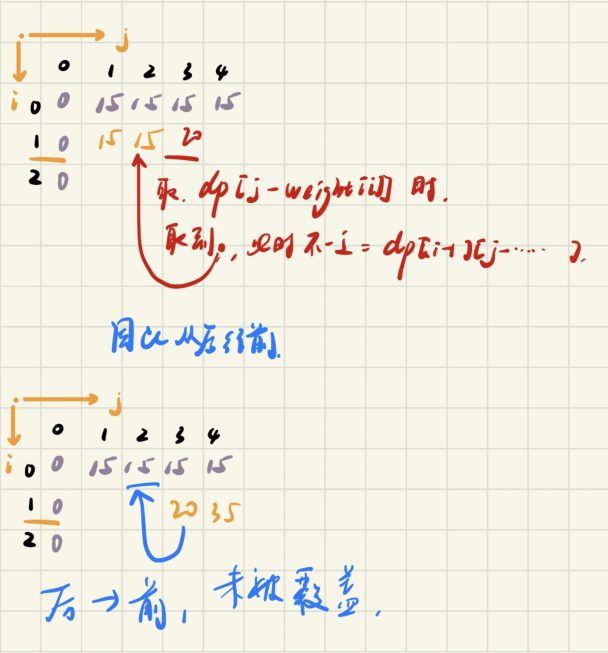 j
0 1 2 3 4
i 0 0 15 15 15 15
1 0 15 15 20
2 0
取 dp[j-weight[i]] 时.
取到。,此时不一定= dp[i-1][j-……].
因此从后往前.
j
0 1 2 3 4
i 0 0 15 15 15 15
1 0 20 35
2 0
后→前, 未被覆盖.